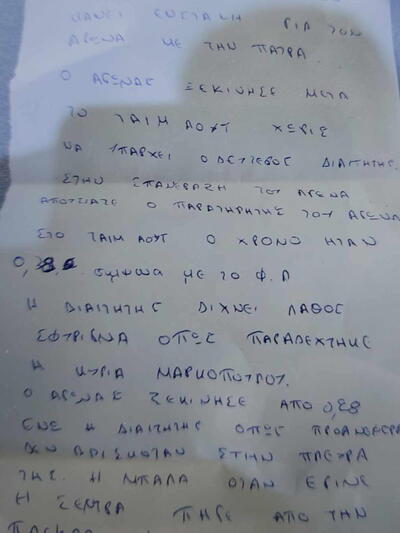 ΚΑΝΕΙ ΕΝΣΤΑΣΗ ΓΙΑ ΤΟΝ
ΑΓΩΝΑ ΜΕ ΤΗΝ ΠΑΤΡΑ
Ο ΑΓΩΝΑΣ ΞΕΚΙΝΗΣΕ ΜΕΤΑ
ΤΟ ΤΑΙΜ ΑΟΥΤ ΧΩΡΙΣ
ΝΑ ΥΠΑΡΧΕΙ Ο ΔΕΥΤΕΡΟΣ ΔΙΑΙΤΗΤΗΣ.
ΣΤΗΝ ΕΠΑΝΕΝΑΞΗ ΤΟΥ ΑΓΩΝΑ
ΑΠΟΥΣΙΑΖΕ Ο ΠΑΡΑΤΗΡΗΤΗΣ ΤΟΥ ΑΓΩΝΑ
ΣΤΟ ΤΑΙΜ ΑΟΥΤ Ο ΧΡΟΝΟ ΗΤΑΝ
ΣΥΜΦΩΑ ΜΕ ΤΟ Φ.Α
Η ΔΙΑΙΤΗΤΗΣ ΔΙΧΝΕΙ ΛΑΘΟΣ
ΣΦΥΡΙΓΜΑ ΟΠΩΣ ΠΑΡΑΔΕΧΤΗΚΕ
Η ΚΥΡΙΑ ΜΑΡΚΟΠΟΥΛΟΥ.
Ο ΑΓΩΝΑΣ ΞΕΚΙΝΗΣΕ ΑΠΟ 0,28
ΕΝΩ Η ΔΙΑΙΤΗΤΗΣ ΟΠΩΣ ΠΡΟΑΝΕΦΕΡΑ
ΔΕΝ ΒΡΙΣΚΟΤΑΝ ΣΤΗΝ ΠΛΕΥΡΑ
ΤΗΣ. Η ΜΠΑΛΑ ΟΤΑΝ ΕΓΙΝΕ
Η ΣΕΝΤΡΑ ΠΗΓΕ ΑΠΟ ΤΗΝ